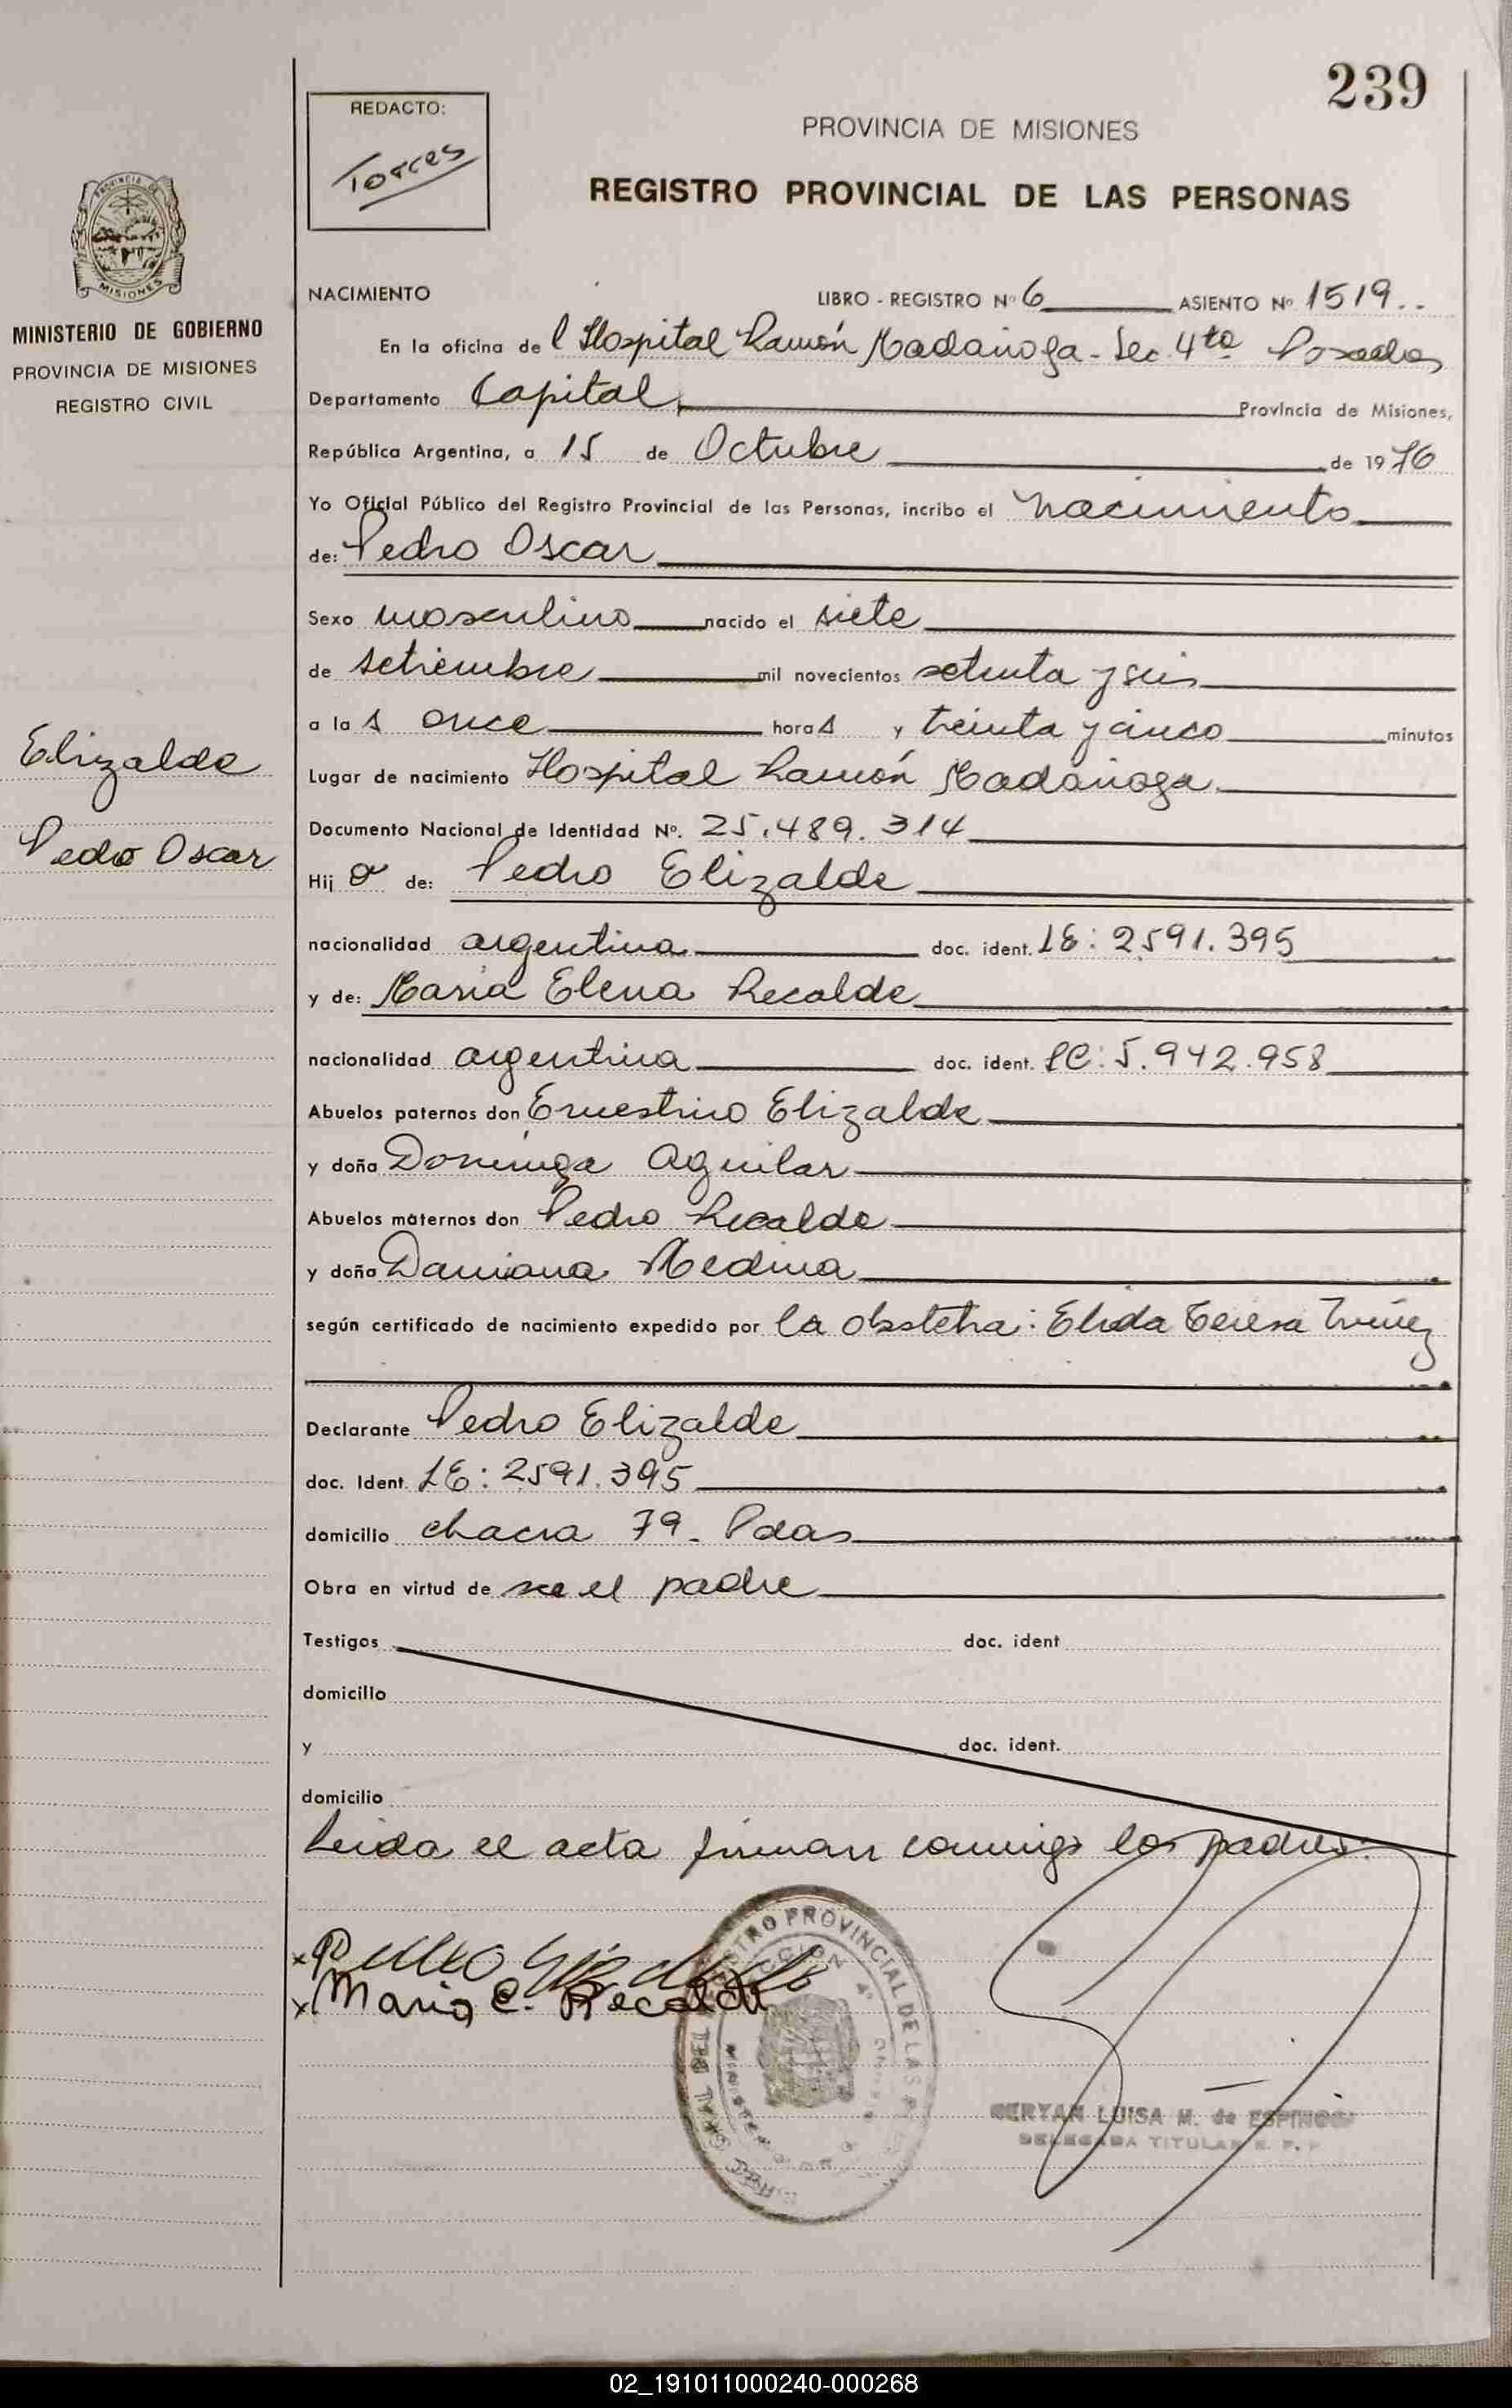 239
REDACTO:
Torres
PROVINCIA DE MISIONES
REGISTRO PROVINCIAL DE LAS PERSONAS
PROVINCIA DE
MISIONES
MINISTERIO DE GOBIERNO
PROVINCIA DE MISIONES
REGISTRO CIVIL
NACIMIENTO LIBRO - REGISTRO Nº 6 ASIENTO Nº 1519..
En la oficina de l Hospital Ramón Madariaga - Sec. 4ta Posadas
Departamento Capital, Provincia de Misiones,
República Argentina, a 15 de Octubre de 1976
Yo Oficial Público del Registro Provincial de las Personas, incribo el nacimiento
de: Pedro Oscar
Sexo masculino nacido el siete
de setiembre mil novecientos setenta y seis
a la s once hora s y treinta y cinco minutos
Lugar de nacimiento Hospital Ramón Madariaga.
Documento Nacional de Identidad Nº. 25.489.314
Hij o de: Pedro Elizalde
nacionalidad argentina doc. ident. LE: 2591.395
y de: Maria Elena Recalde
nacionalidad argentina doc. ident. LC: 5.942.958
Abuelos paternos don Ernestino Elizalde
y doña Dominga Aguilar
Abuelos maternos don Pedro Recalde
y doña Damiana Medina
según certificado de nacimiento expedido por la obstetra: Elida Teresa
Declarante Pedro Elizalde
doc. Ident. LE: 2591.395
domicilio chacra 79. Pdas
Obra en virtud de ser el padre
Testigos doc. ident
domicilio
y doc. ident.
domicilio
Leida el acta firman conmigo los padres.
Elizalde
Pedro Oscar
x Pedro Elizalde
x Maria E. Recalde
REGISTRO PROVINCIAL DE LAS
SECCION 4ª
LUISA M. de ESPINOSA
DELEGADA TITULAR R. P. P
02_191011000240-000268